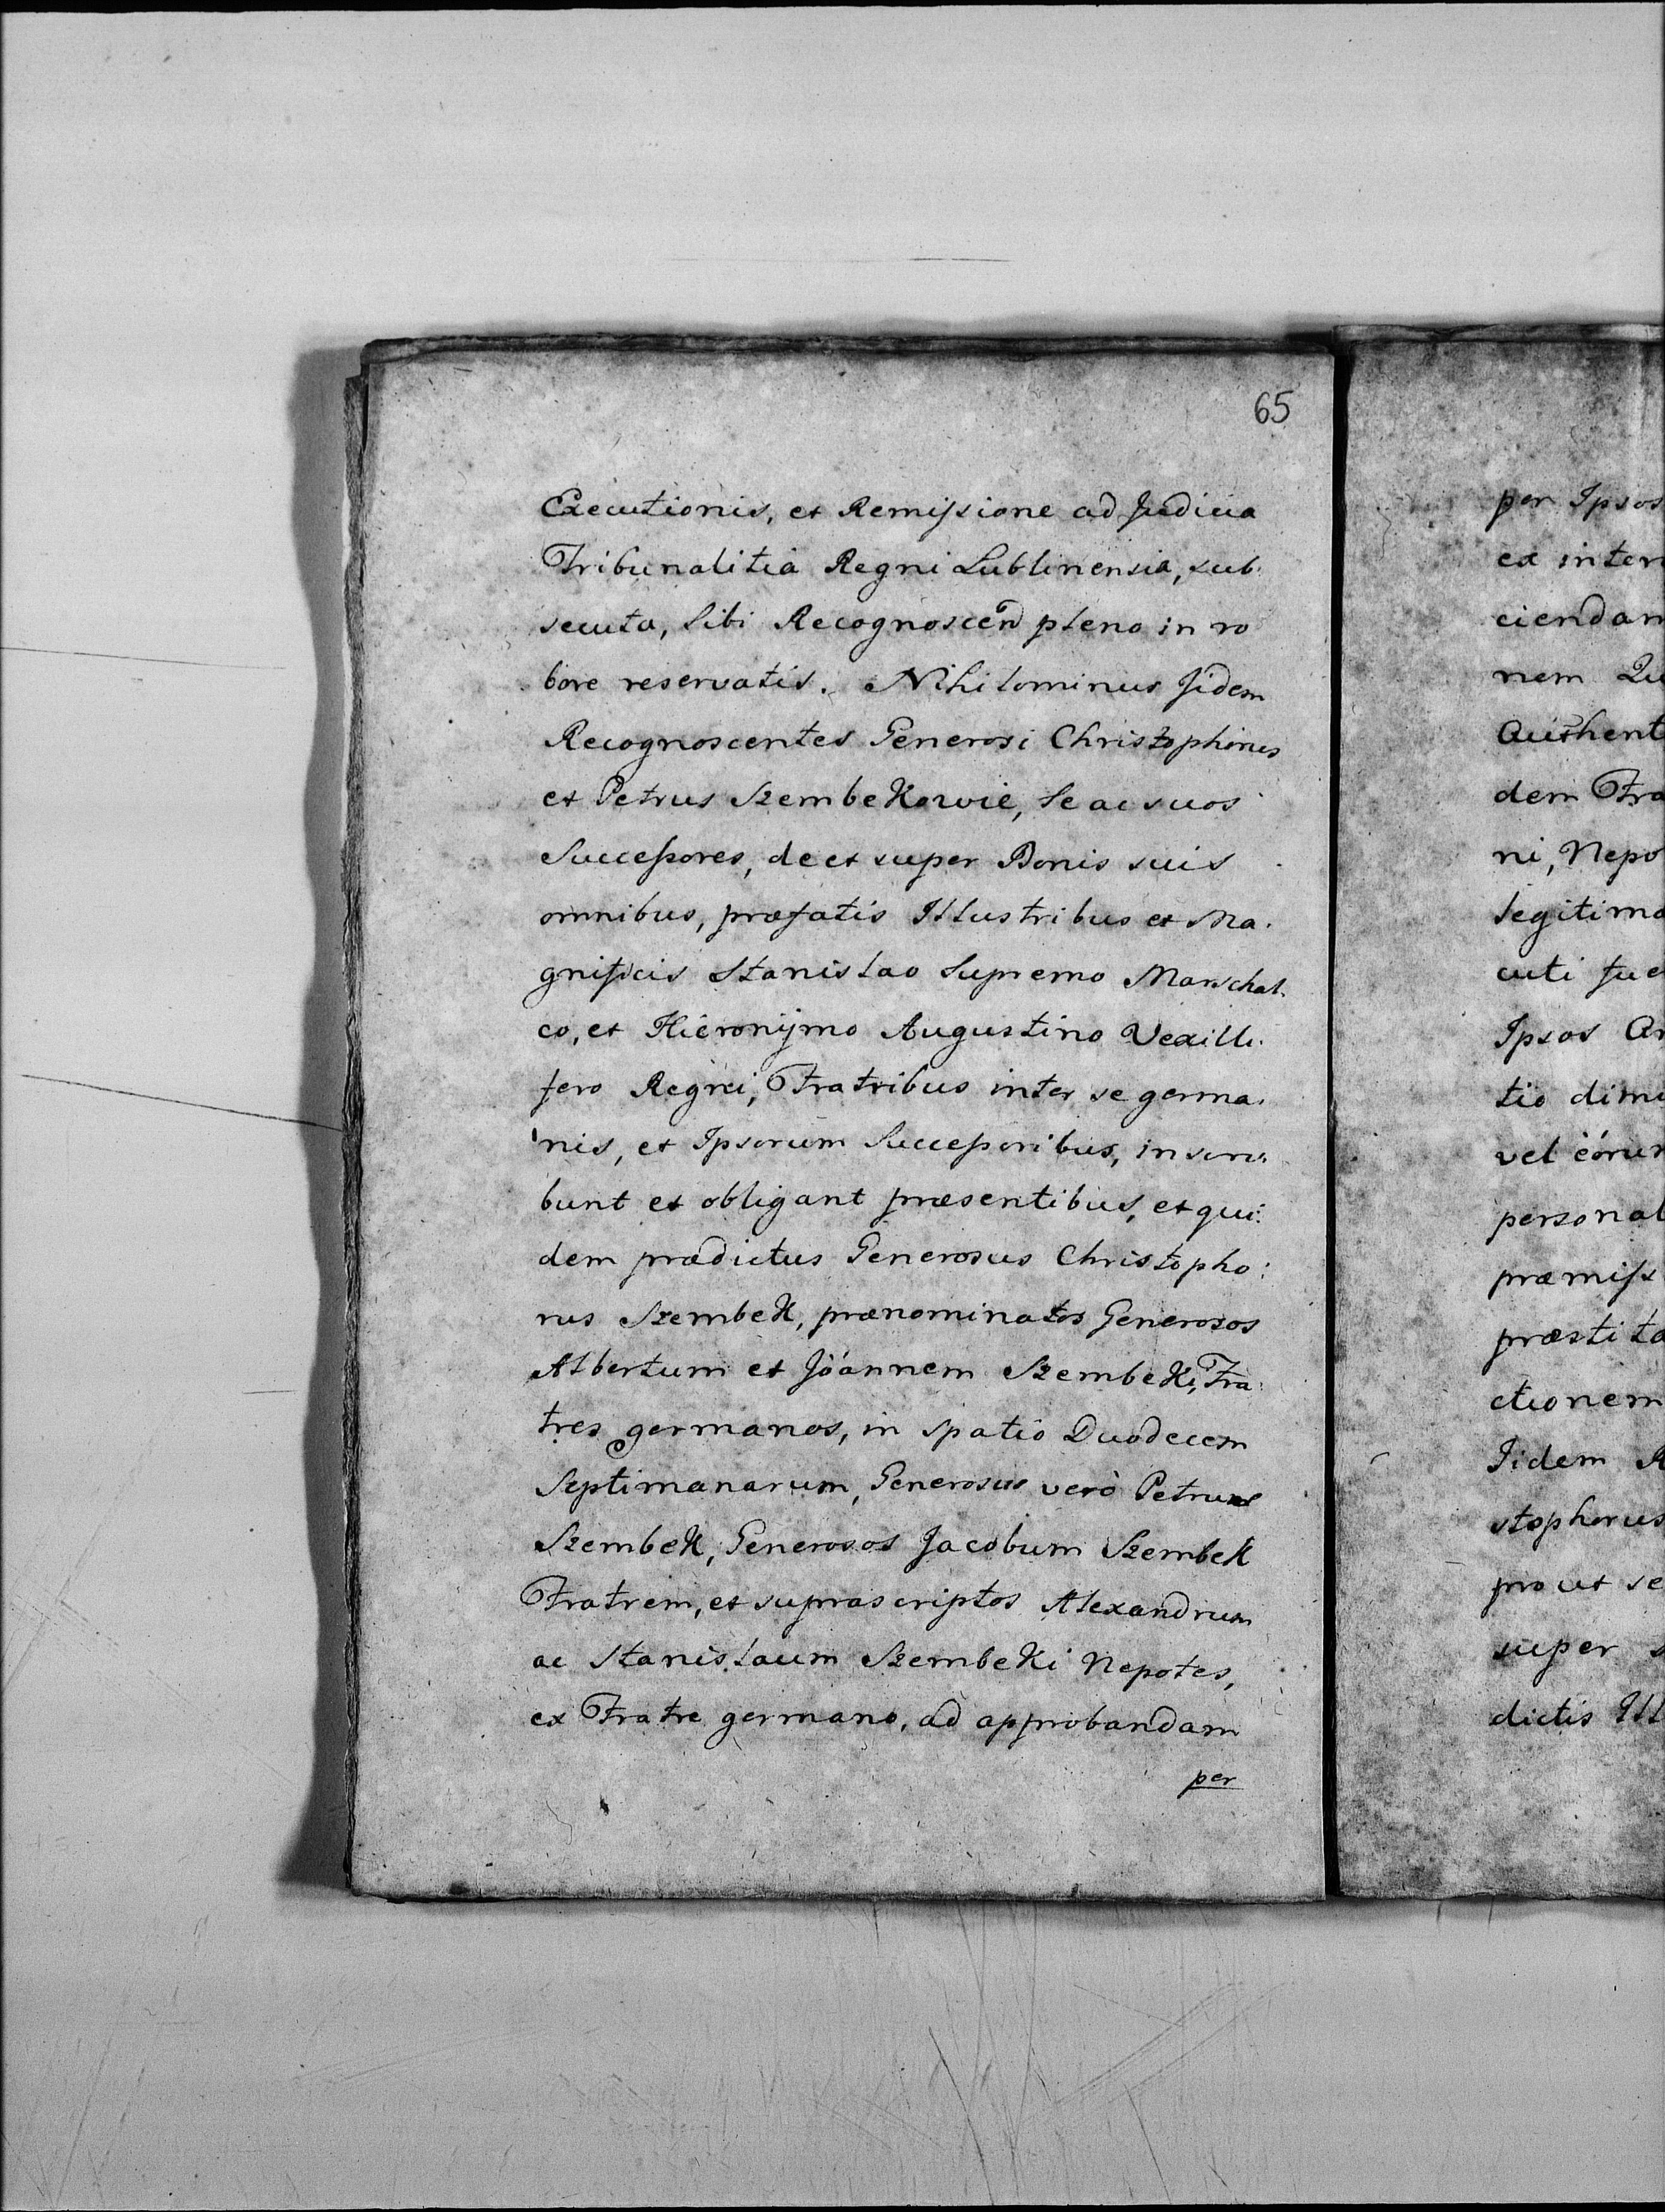 65
Executionis, et Remissione ad Judicia
Tribunalitia Regni Lublinensia, sub.
secuta, Sibi Recognoscen͠d pleno in ro
bore reservatis. Nihilominus Jidem
Recognoscentes Generosi Christophorus
et Petrus Szembekowie, Se ac suos
Successores, de et super Bonis suis
omnibus, præfatis Illustribus et Ma.
gnificis Stanislao Supremo Marschal.
co, et Hieronÿmo Augustino Vexilli.
fero Regni, Fratribus inter se germa.
nis, et Ipsorum Successoribus, inscri.
bunt et obligant præsentibus, et qui:
dem prædictus Generosus Christopho:
rus Szembek, prænominatos Generosos
Albertum et Jóannem Szembeki, Fra:
tres germanos, in spatio Duodecem
Septimanarum, Generosus verò Petrus
Szembek, Generosos Jacobum Szembek
Fratrem, et suprascriptos Alexandrum
ac Stanislaum Szembeki Nepotes,
ex Fratre germano, ad approbandam
per
per Ipsos
ex inter
ciendam
nem Qu
Authent
dem Fra
ni, Nepo
legitima
cuti fue
Ipsos
tio dimi
vel eórum
personal
præmiss
præstita
ctionem
Iidem R
stophorus
prout se
super s
dictis Ill